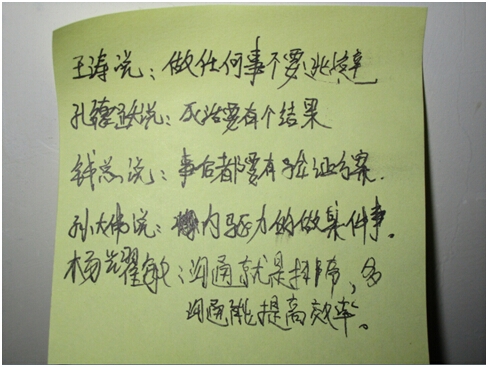 王涛说：做任何事不要逃避
孔德跃说：反治要有个结果
钱总说：事后都要有验证方案.
孙大伟说：内驱力的做某件事。
杨耀敏：沟通就是打开，多
沟通能提高效率。